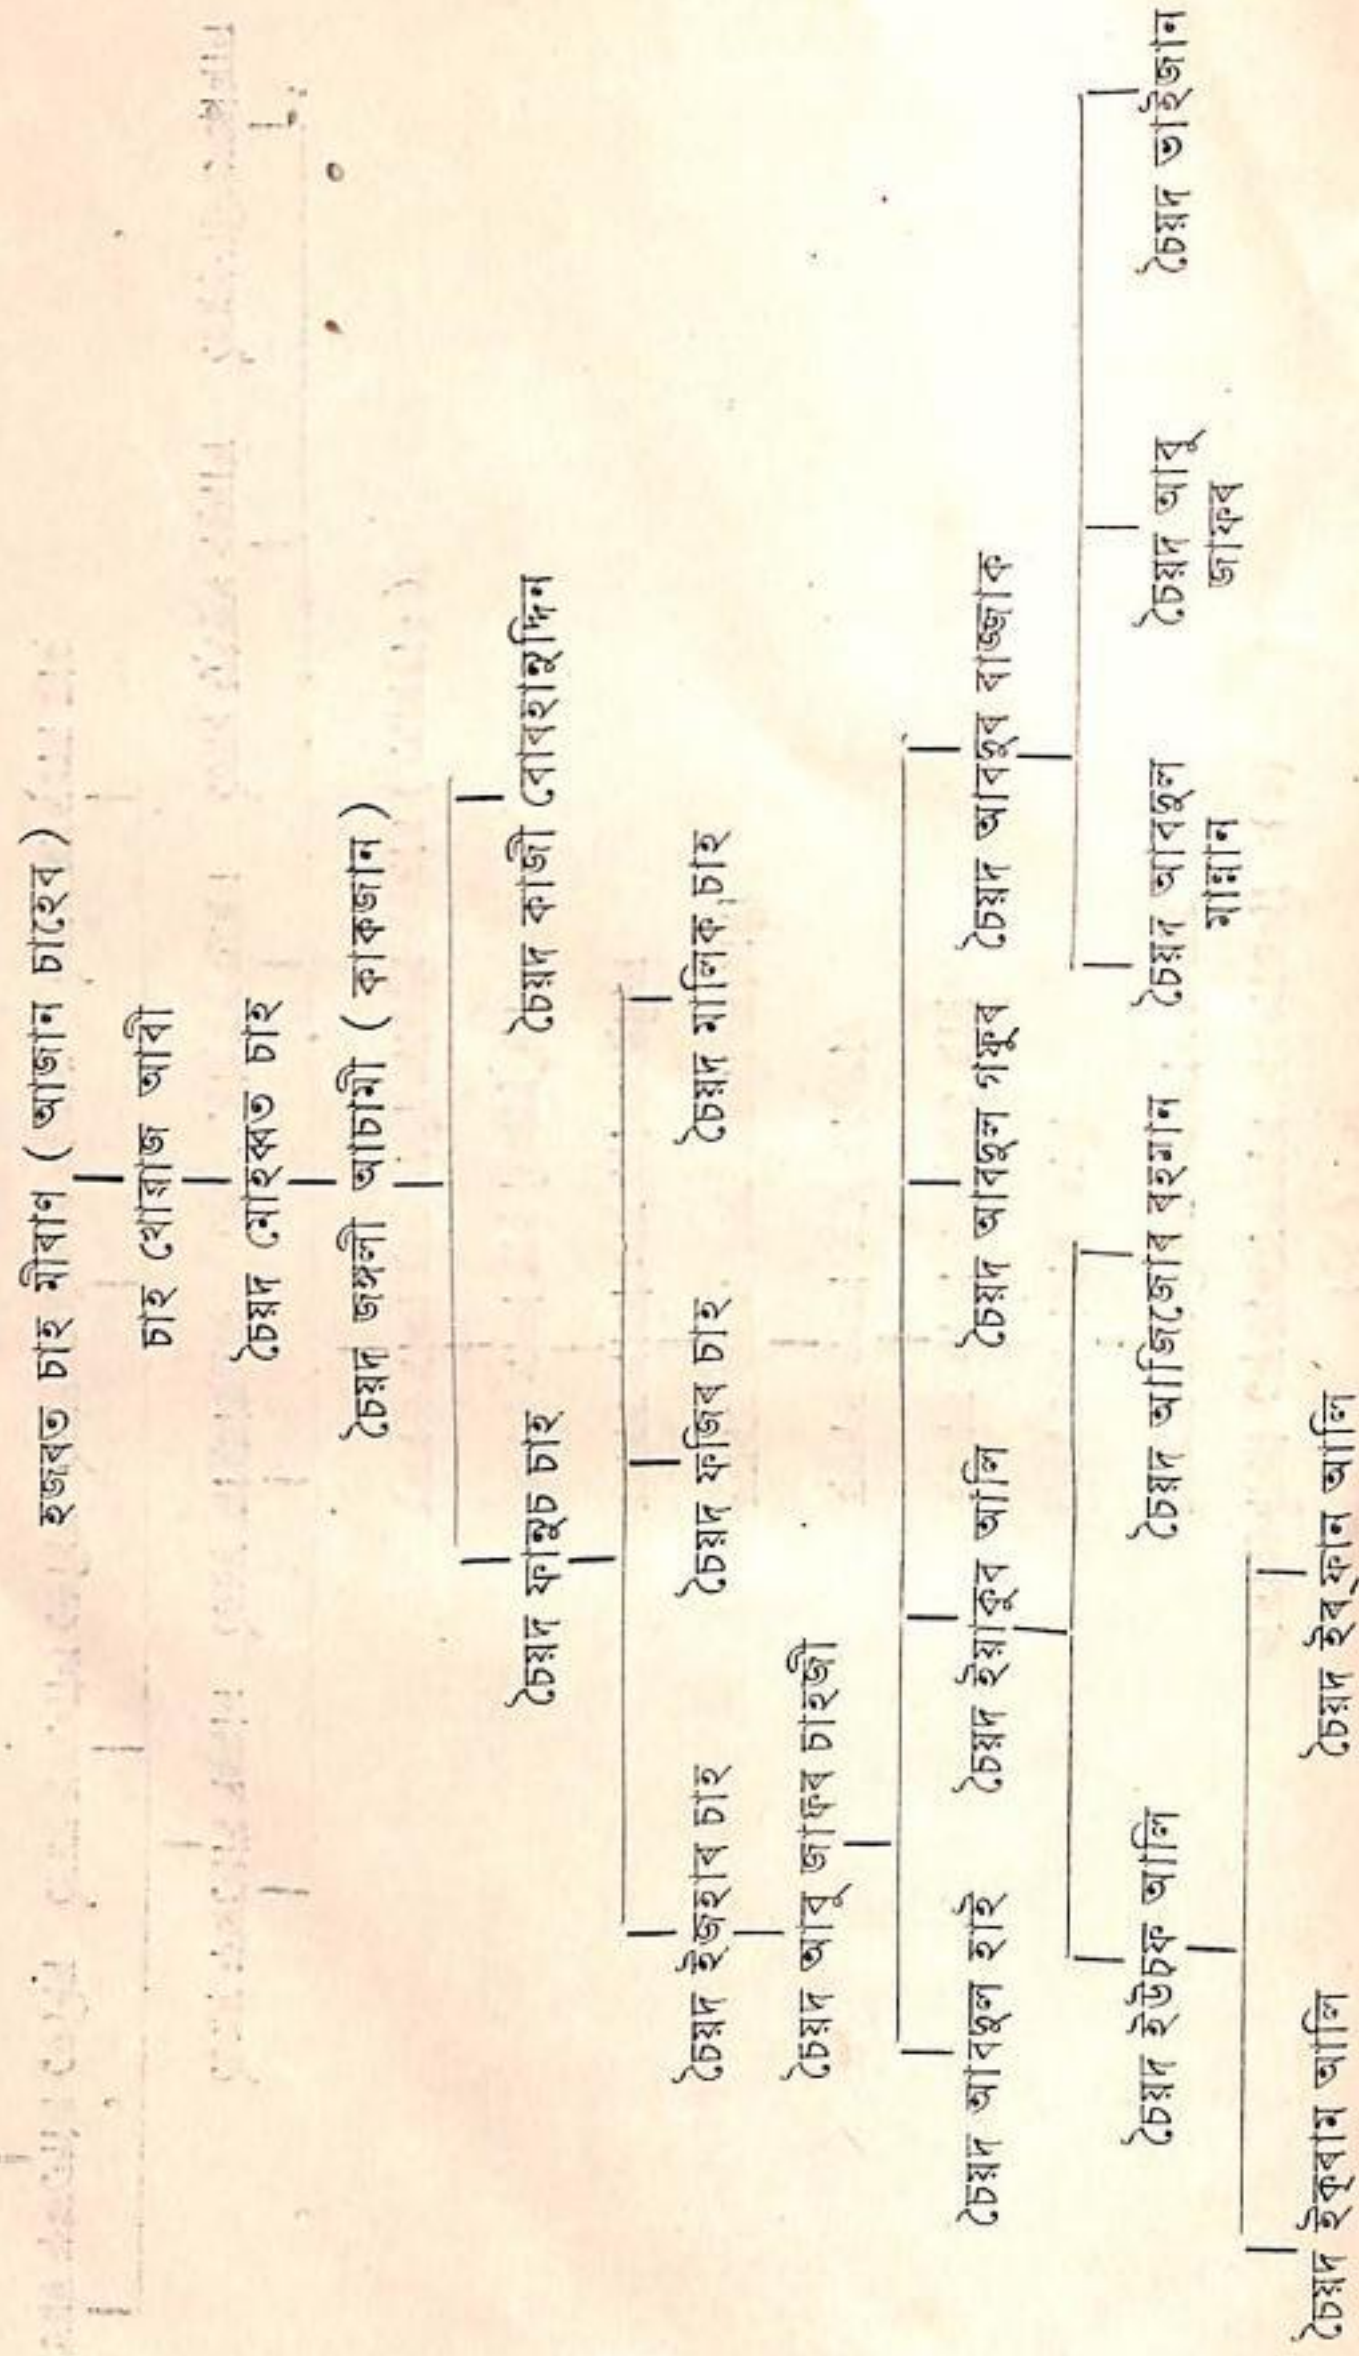 হজৰত চাহ মীৰাণ ( আজান চাহেব )
চাহ খোৱাজ আৰী
চৈয়দ মোহব্বত চাহ
চৈয়দ জয়লী আচামী ( কাকজান )
চৈয়দ ফান্নুচ চাহ চৈয়দ কাজী বোৰহানুদ্দিন
চৈয়দ ইজহাৰ চাহ চৈয়দ ফজিৰ চাহ চৈয়দ মালিক চাহ
চৈয়দ আবু জাফৰ চাহজী
চৈয়দ আবদুল হাই চৈয়দ ইয়াকুব আলি চৈয়দ আবদুল গফুৰ চৈয়দ আবদুৰ ৰাজ্জাক
চৈয়দ ইউচফ আলি চৈয়দ আজিজোৰ ৰহমান চৈয়দ আবদুল মান্নান চৈয়দ আবু জাফৰ চৈয়দ ভাইজান
চৈয়দ ইক্ৰাম আলি চৈয়দ ইৰ্ফান আলি